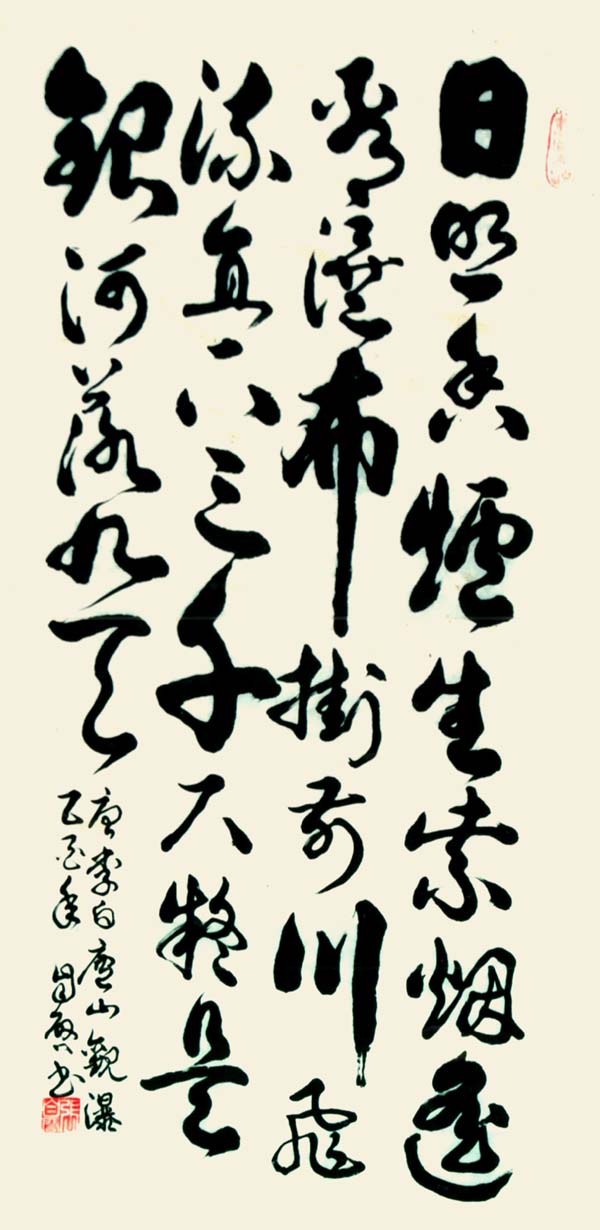 日照香爐生紫烟遥
看瀑布掛前川飛
流直下三千尺疑是
銀河落九天
唐李白廬山觀瀑
乙酉年 書